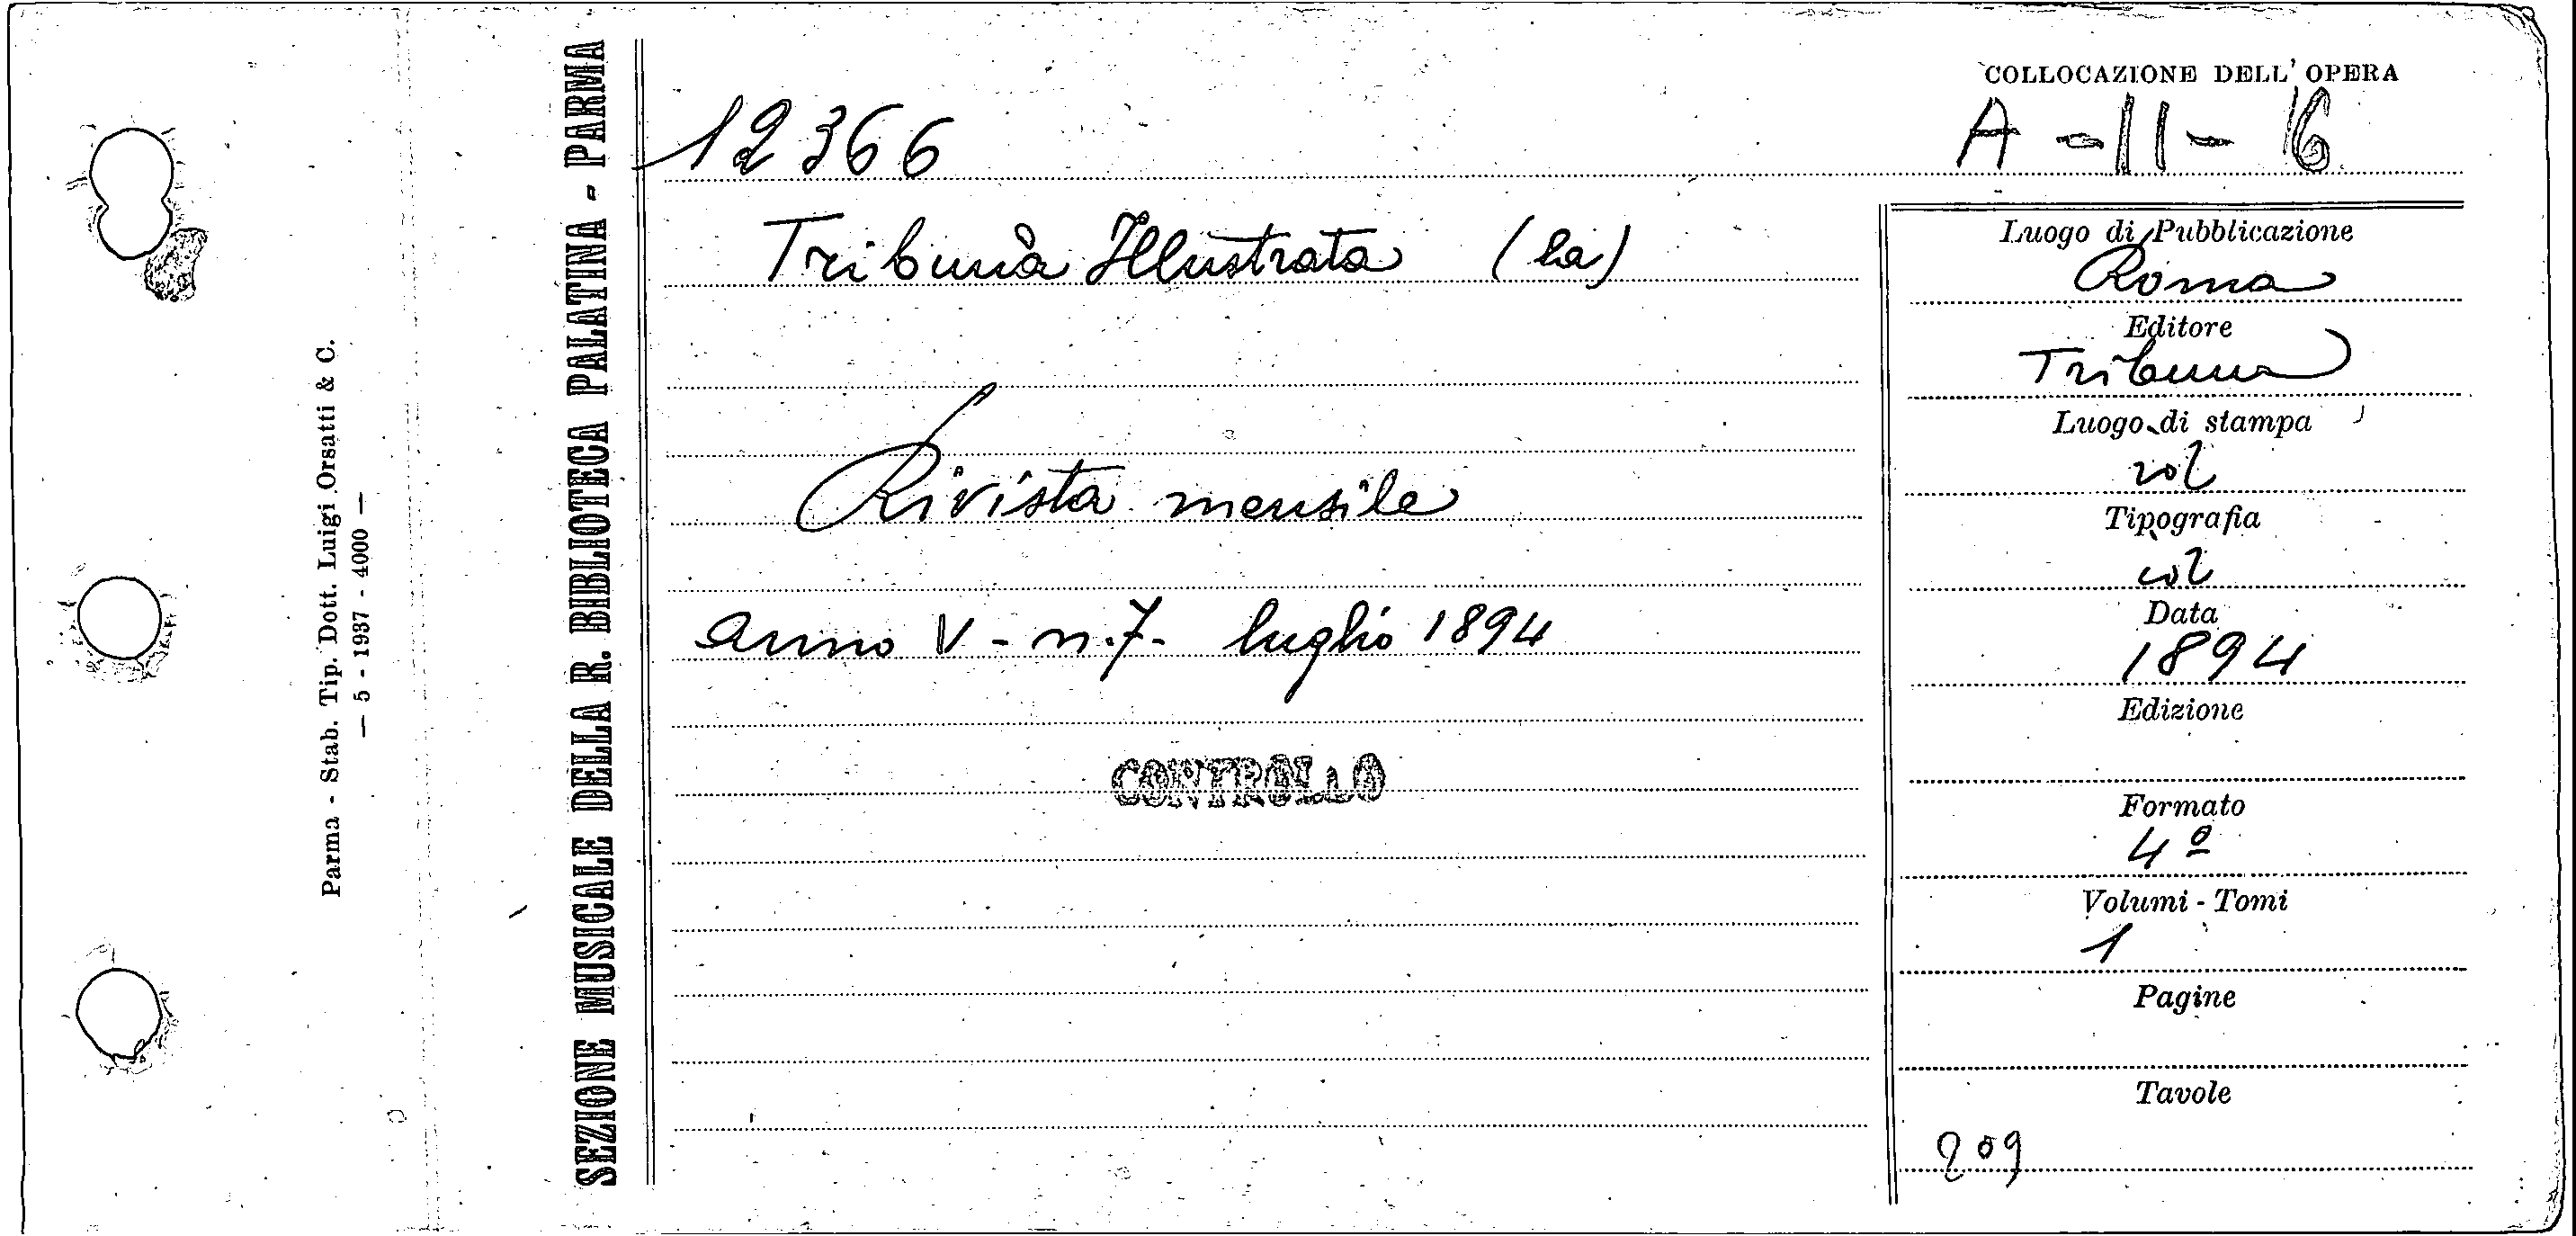 Parma - Stab. Tip. Dott. Luigi Orsatti & C.
— 5 - 1937 - 4000 —
SEZIONE MUSICALE DELLA R. BIBLIOTECA PALATINA - PARMA
12366
Tribuna Illustrata (la)
Rivista mensile
anno V - n. 7 - luglio 1894
CONTROLLO
COLLOCAZIONE DELL' OPERA
A - II - 6
Luogo di Pubblicazione
Roma
Editore
Tribuna
Luogo di stampa
Tipografia
Data
1894
Edizione
Formato
4º
Volumi - Tomi
1
Pagine
Tavole
209